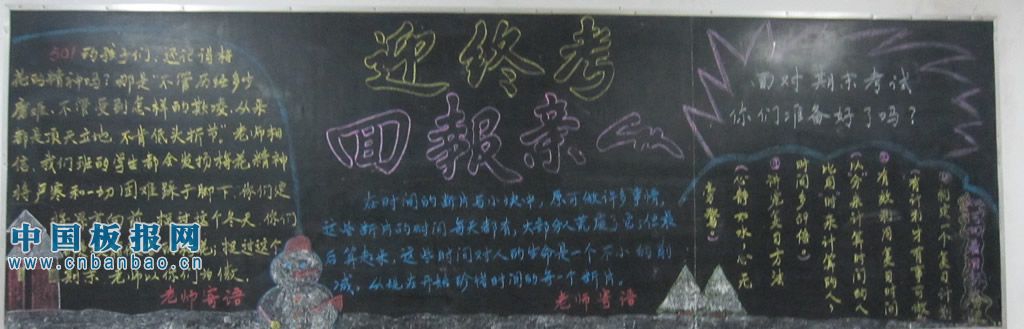 501的孩子们，还记得梅
花的精神吗？那是"不管历经多少
磨难，不管受到怎样的欺凌，从来
都是顶天立地，不肯低头折节。"老师相
信，我们班的学生都会发扬梅花精神
将严寒和一切困难踩于脚下，你们定
挺过这个冬天，你们
挺过这个
老师以你们为傲
老师寄语
迎终考
回報亲心
在时间的断片与小块中，原可做许多事情，
这些断片的时间每天都有，大部分人荒废了它，但最
后算起来，这些时间对人的生命是一个不小的削
减，从现在开始珍惜时间的每一个断片。
老师寄语
面对期末考试
你们准备好了吗？
①制定一个复习计划
（有计划才有事可做）
②有效利用复习时间
（以分来计算时间的人
比用"时"来计算的人，
时间多59倍）
③讲究复习方法
（心静如水，心无
旁骛）
中国板报网
www.cnbanbao.cn